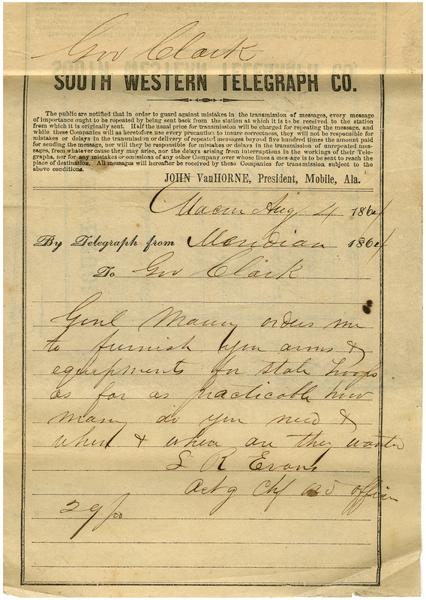 Gov Clark
SOUTH WESTERN TELEGRAPH CO.
The public are notified that in order to guard against mistakes in the transmission of messages, every message
of importance ought to be repeated by being sent back from the station at which it is to be received to the station
from which it is originally sent. Half the usual price for transmission will be charged for repeating the message, and
while these Companies will as heretofore use every precaution to insure correctness, they will not be responsible for
mistakes or delays in the transmission or delivery of repeated messages beyond five hundred times the amount paid
for sending the message, nor will they be responsible for mistakes or delays in the transmission of unrepeated mess-
ages, from whatever cause they may arise, nor for delays arising from interruptions in the workings of their Tele-
graphs, nor for any mistakes or omissions of any other Company over whose lines a message is to be sent to reach the
place of destination. All messages will hereafter be received by these Companies for transmission subject to the
above conditions.
JOHN VanHORNE, President, Mobile, Ala.
Macon Aug 4 1864
By Telegraph from Meridian 1864
To Gov Clark
Genl Maury orders me
to furnish you arms &
equipments for state troops
as far as practicable how
many do you need &
when & where are they wanted
L R Evans
Actg Chf Ord officer
29